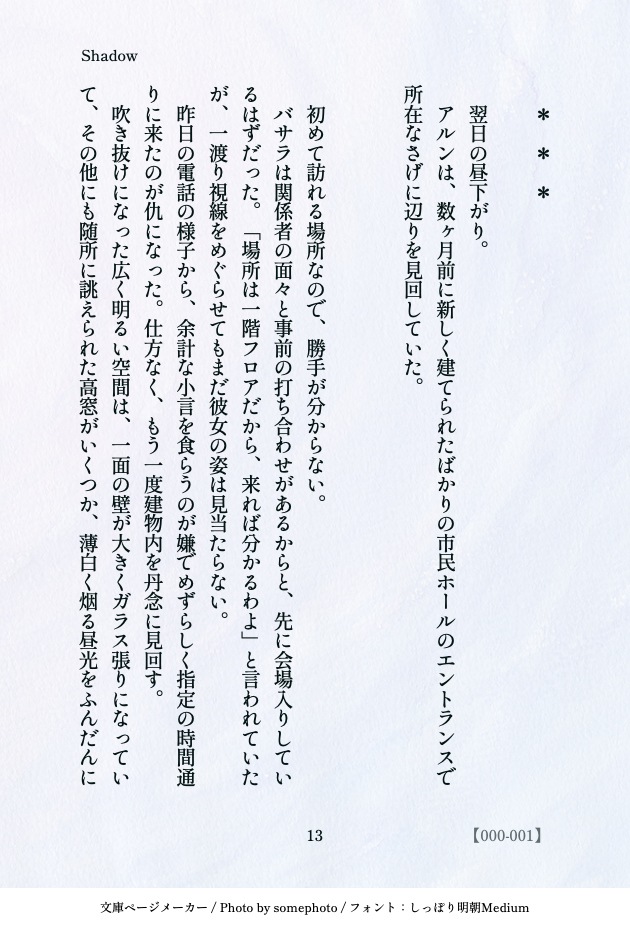 Shadow
＊　＊　＊
翌日の昼下がり。
アルンは、数ヶ月前に新しく建てられたばかりの市民ホールのエントランスで
所在なさげに辺りを見回していた。
初めて訪れる場所なので、勝手が分からない。
バサラは関係者の面々と事前の打ち合わせがあるからと、先に会場入りしてい
るはずだった。「場所は一階フロアだから、来れば分かるわよ」と言われていた
が、一渡り視線をめぐらせてもまだ彼女の姿は見当たらない。
昨日の電話の様子から、余計な小言を食らうのが嫌でめずらしく指定の時間通
りに来たのが仇になった。仕方なく、もう一度建物内を丹念に見回す。
吹き抜けになった広く明るい空間は、一面の壁が大きくガラス張りになってい
て、その他にも随所に誂えられた高窓がいくつか、薄白く烟る昼光をふんだんに
13
【000-001】
文庫ページメーカー / Photo by somephoto / フォント：しっぽり明朝Medium